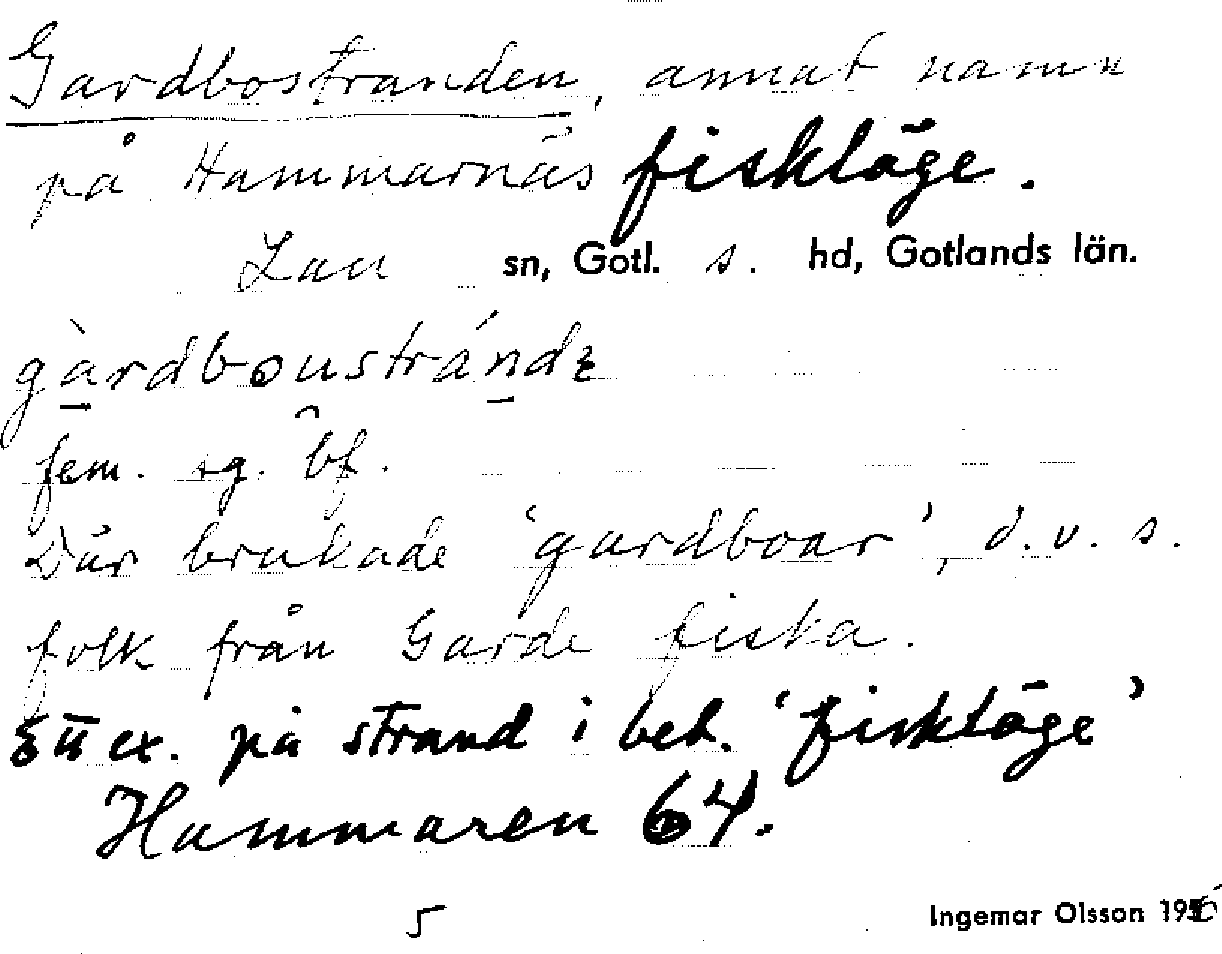 Gardbostranden, annat namn
på Hammarnäs fiskläge.
Lau sn, Gotl. s. hd, Gotlands län.
gàrdboustrándɛ
fem. sg. bf.
Där brukade 'gardboar', d.v.s.
folk från Garde fiska.
Ett ex. på strand i bet. 'fiskläge'
Hammaren 64.
5 Ingemar Olsson